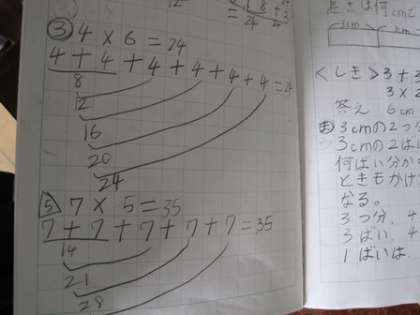 ③ 4 × 6 = 24
4 + 4 + 4 + 4 + 4 + 4 = 24
8
12
16
20
24
5 7 × 5 = 35
7 + 7 + 7 + 7 + 7 = 35
14
21
28
長さは何cmで
3cm
<しき> 3 +
3 × 2
答え 6cm
3cmの2つ分
3cmの2ばい
何ばい分か
ときもかけ
なる。
3つ分、4
3ばい、4
1ばいは